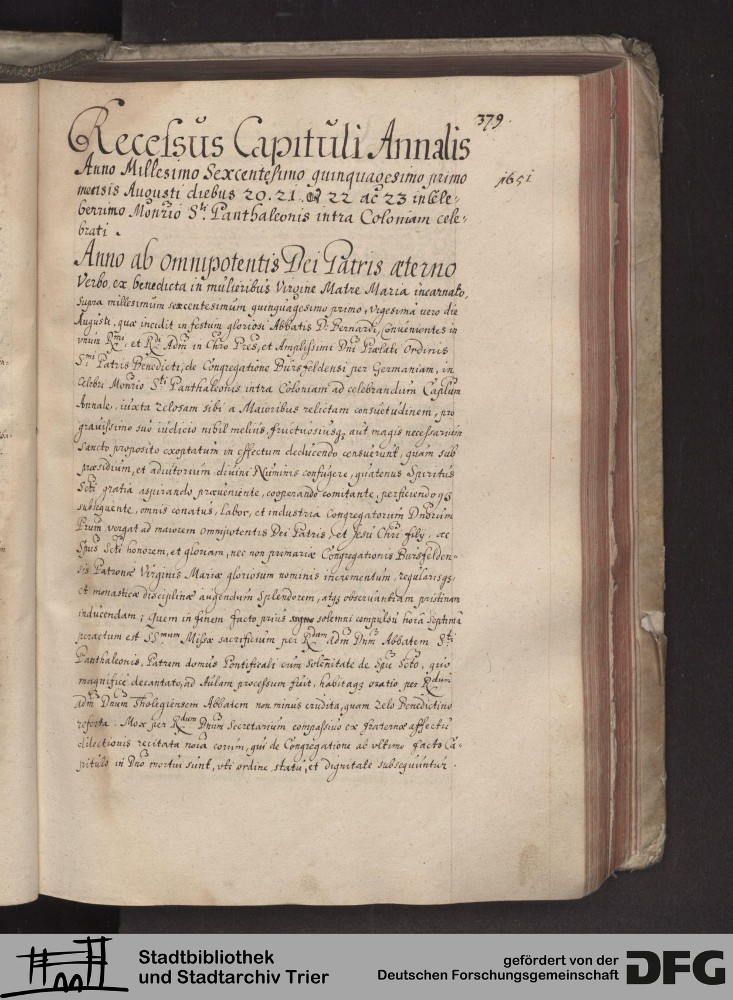 379.
Recessus Capituli Annalis
Anno Millesimo Sexcentesimo quinquagesimo primo
1651
mensis Augusti diebus 20. 21. & 22 ac 23 in cele-
berrimo Monrio Sti Panthaleonis intra Coloniam cele-
brati.
Anno ab omnipotentis Dei Patris æterno
Verbo, ex benedicta in mulieribus Virgine Matre Maria incarnato,
supra millesimum sexcentesimum quinquagesimo primo, vigesima vero die
Augusti, quæ incidit in festum gloriosi Abbatis D. Bernardi, Convenientes in
unum Rmi, et Rdi Adm in Chro Pres, et Amplissimi Dni Prælati Ordinis
Smi Patris Benedicti, de Congregatione Bursfeldensi per Germaniam, in
celebri Monrio Sti Panthaleonis intra Coloniam ad celebrandum Caplum
Annale, iuxta zelosam sibi a Maioribus relictam consuetudinem, pro
gravissimo suo iudicio nihil melius, fructuosiusq; aut magis necessarium
sancto proposito exoptatum in effectum deducendo censuerunt, quam sub
præsidium, et adiutorium divini Numinis confugere, quatenus Spiritus
Scti gratia aspirando præveniente, cooperando comitante, perficiendo q;
subsequente, omnis conatus, labor, et industria Congregatorum Dnorum
Prum vergat ad maiorem omnipotentis Dei Patris, et Jesu Chri filij, ac
Spus Scti honorem, et gloriam, nec non primariæ Congregationis Bursfelden-
sis Patronæ Virginis Mariæ gloriosum nominis incrementum, regularisq;
et monasticæ disciplinæ augendum splendorem, atq; observantiam pristinam
inducendam; Quem in finem facto prius signo solemni compulsu hora septima
peractum est SSmum Missæ sacrificium per Rdum adm Dnm Abbatem Sti
Panthaleonis, Patrem domus Pontificali cum Solenitate de Spu Scto, quo
magnifice decantato, ad Aulam processum fuit, habitaq; oratio per Rdum
adm Dnum Tholegiensem Abbatem non minus erudita, quam zelo Benedictino
referta. Mox per Rdum Dnum Secretarium compassivo ex fraternæ affectu
dilectionis recitata noia eorum, qui de Congregatione ab ultimo facto Ca-
pitulo in Dno mortui sunt, uti ordine, statu, et dignitate subsequuntur.
Stadtbibliothek
und Stadtarchiv Trier
gefördert von der
Deutschen Forschungsgemeinschaft
DFG